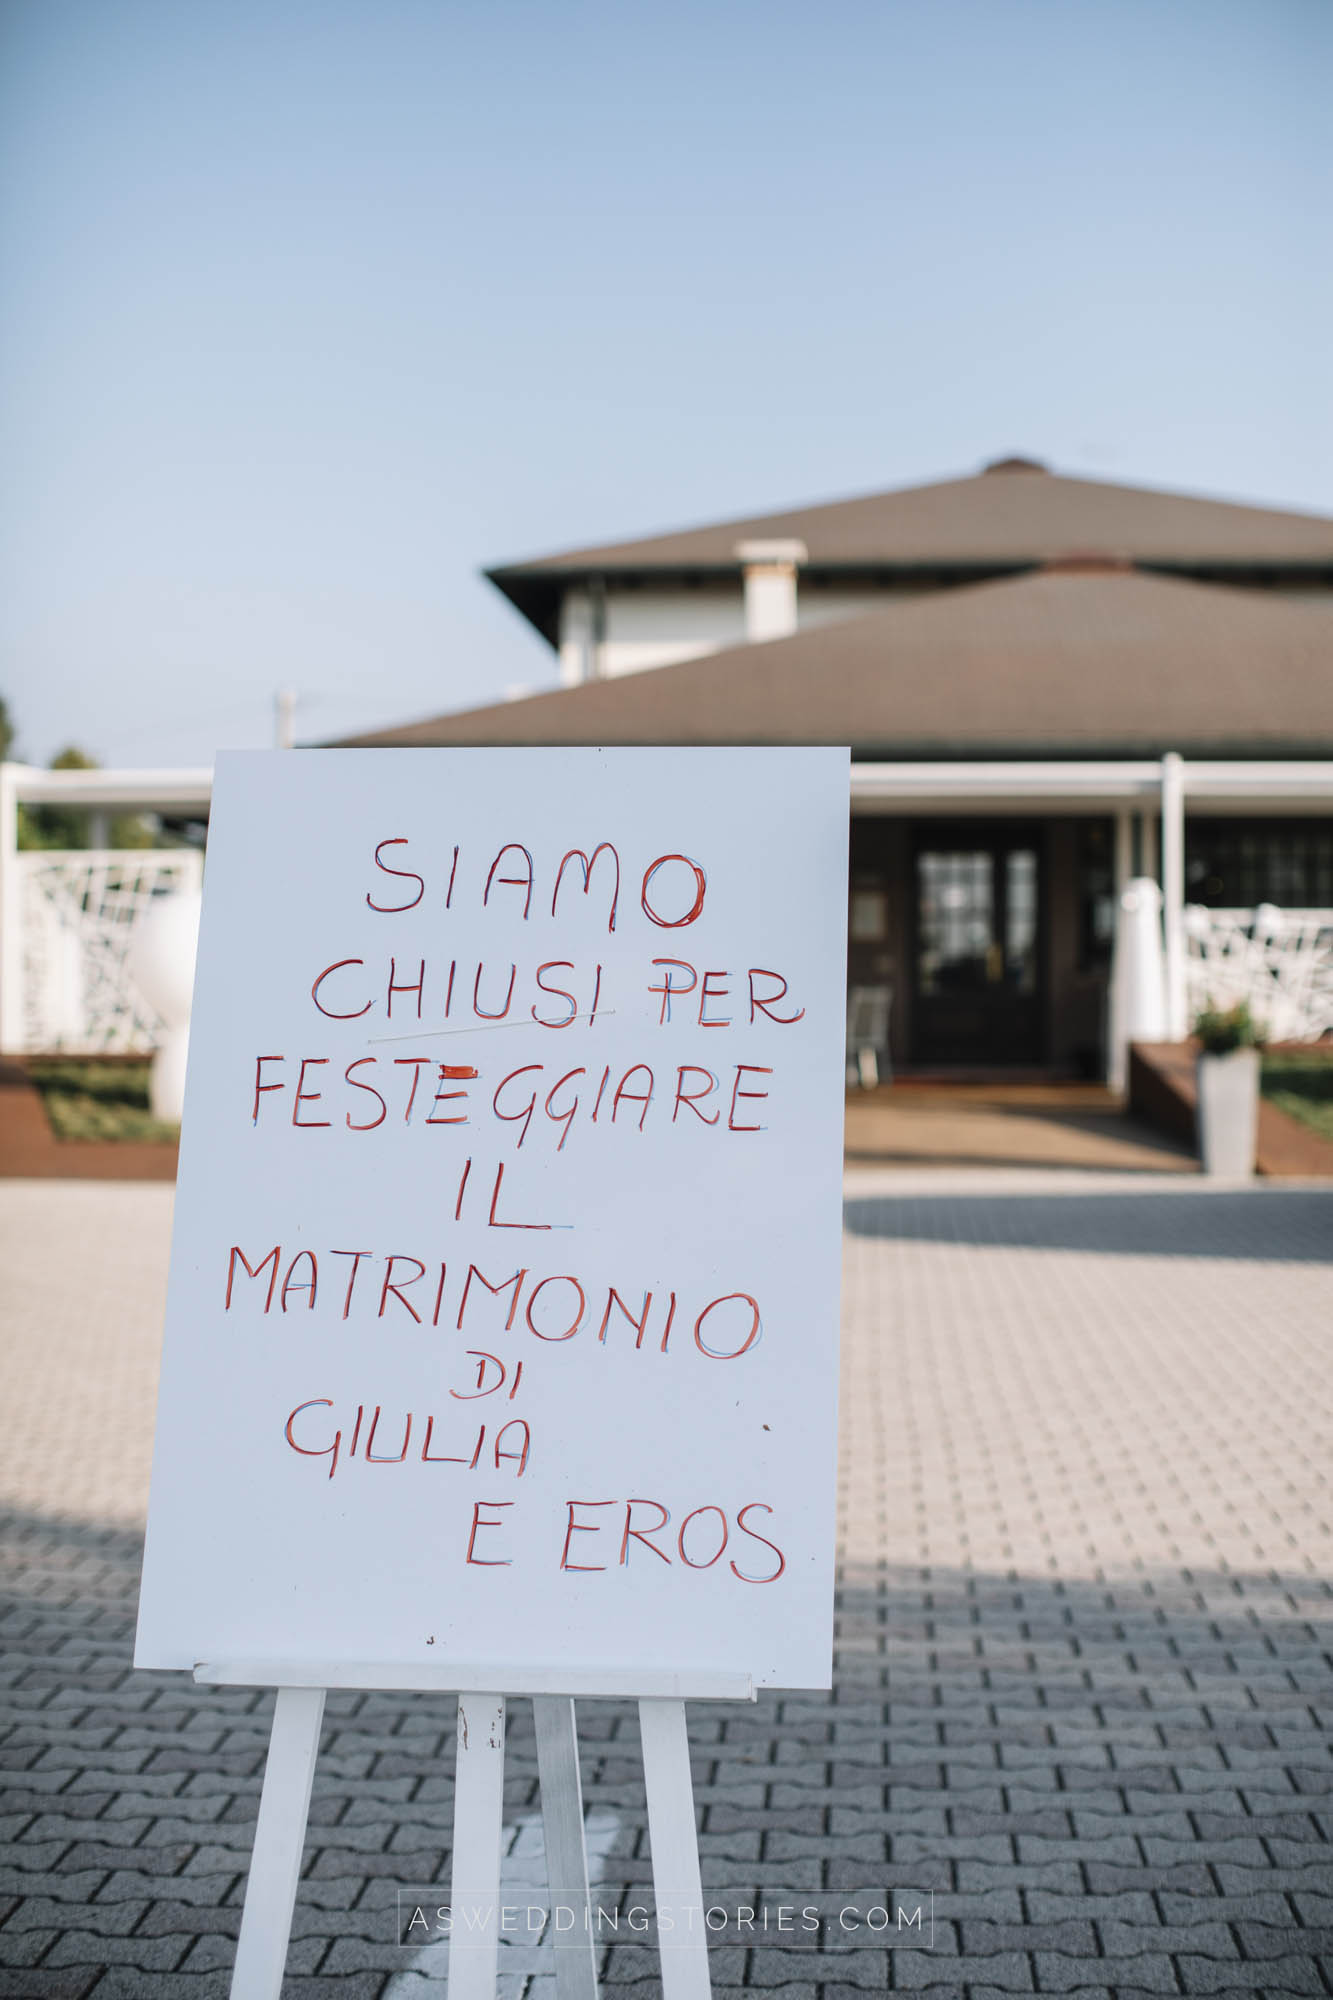 SIAMO
CHIUSI PER
FESTEGGIARE
IL
MATRIMONIO
DI
GIULIA
E EROS
ASWEDDINGSTORIES.COM